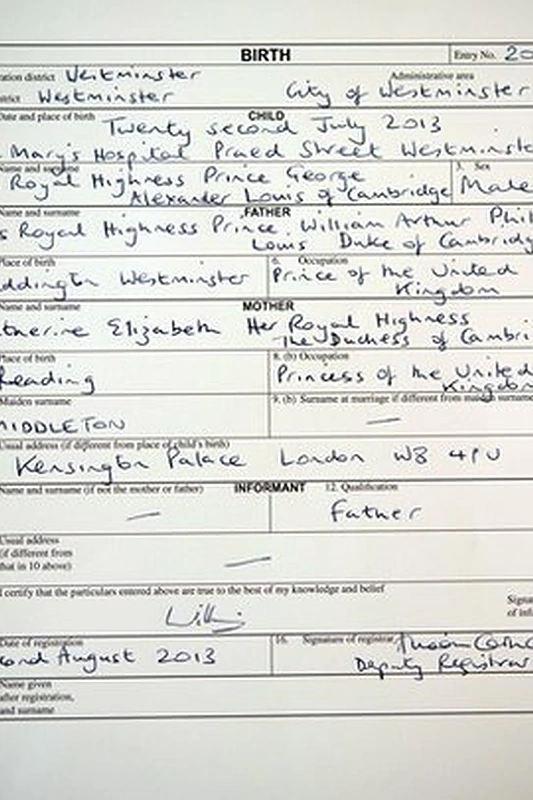 BIRTH Entry No. 20
ation district Westminster Administrative area
trict Westminster City of Westminster
Date and place of birth CHILD
Twenty second July 2013
Mary's Hospital Praed Street Westminste
Name and surname 3. Sex
Royal Highness Prince George Male
Alexander Louis of Cambridge
Name and surname FATHER
s Royal Highness Prince William Arthur Phil
Louis Duke of Cambridg
Place of birth 6. Occupation
ddington Westminster Prince of the United
Kingdom
Name and surname MOTHER
therine Elizabeth Her Royal Highness
The Duchess of Cambri
Place of birth 8. (b) Occupation
Reading Princess of the United
Kingdom
Maiden surname 9. (b) Surname at marriage if different from maiden surname
MIDDLETON —
Usual address (if different from place of child's birth)
Kensington Palace London W8 4PU
Name and surname (if not the mother or father) INFORMANT 12. Qualification
— Father
Usual address
(if different from
that in 10 above) —
I certify that the particulars entered above are true to the best of my knowledge and belief
Signa
of inf
Date of registration 16. Signature of registrar
ond August 2013 Deputy Registrar
Name given
after registration,
and surname